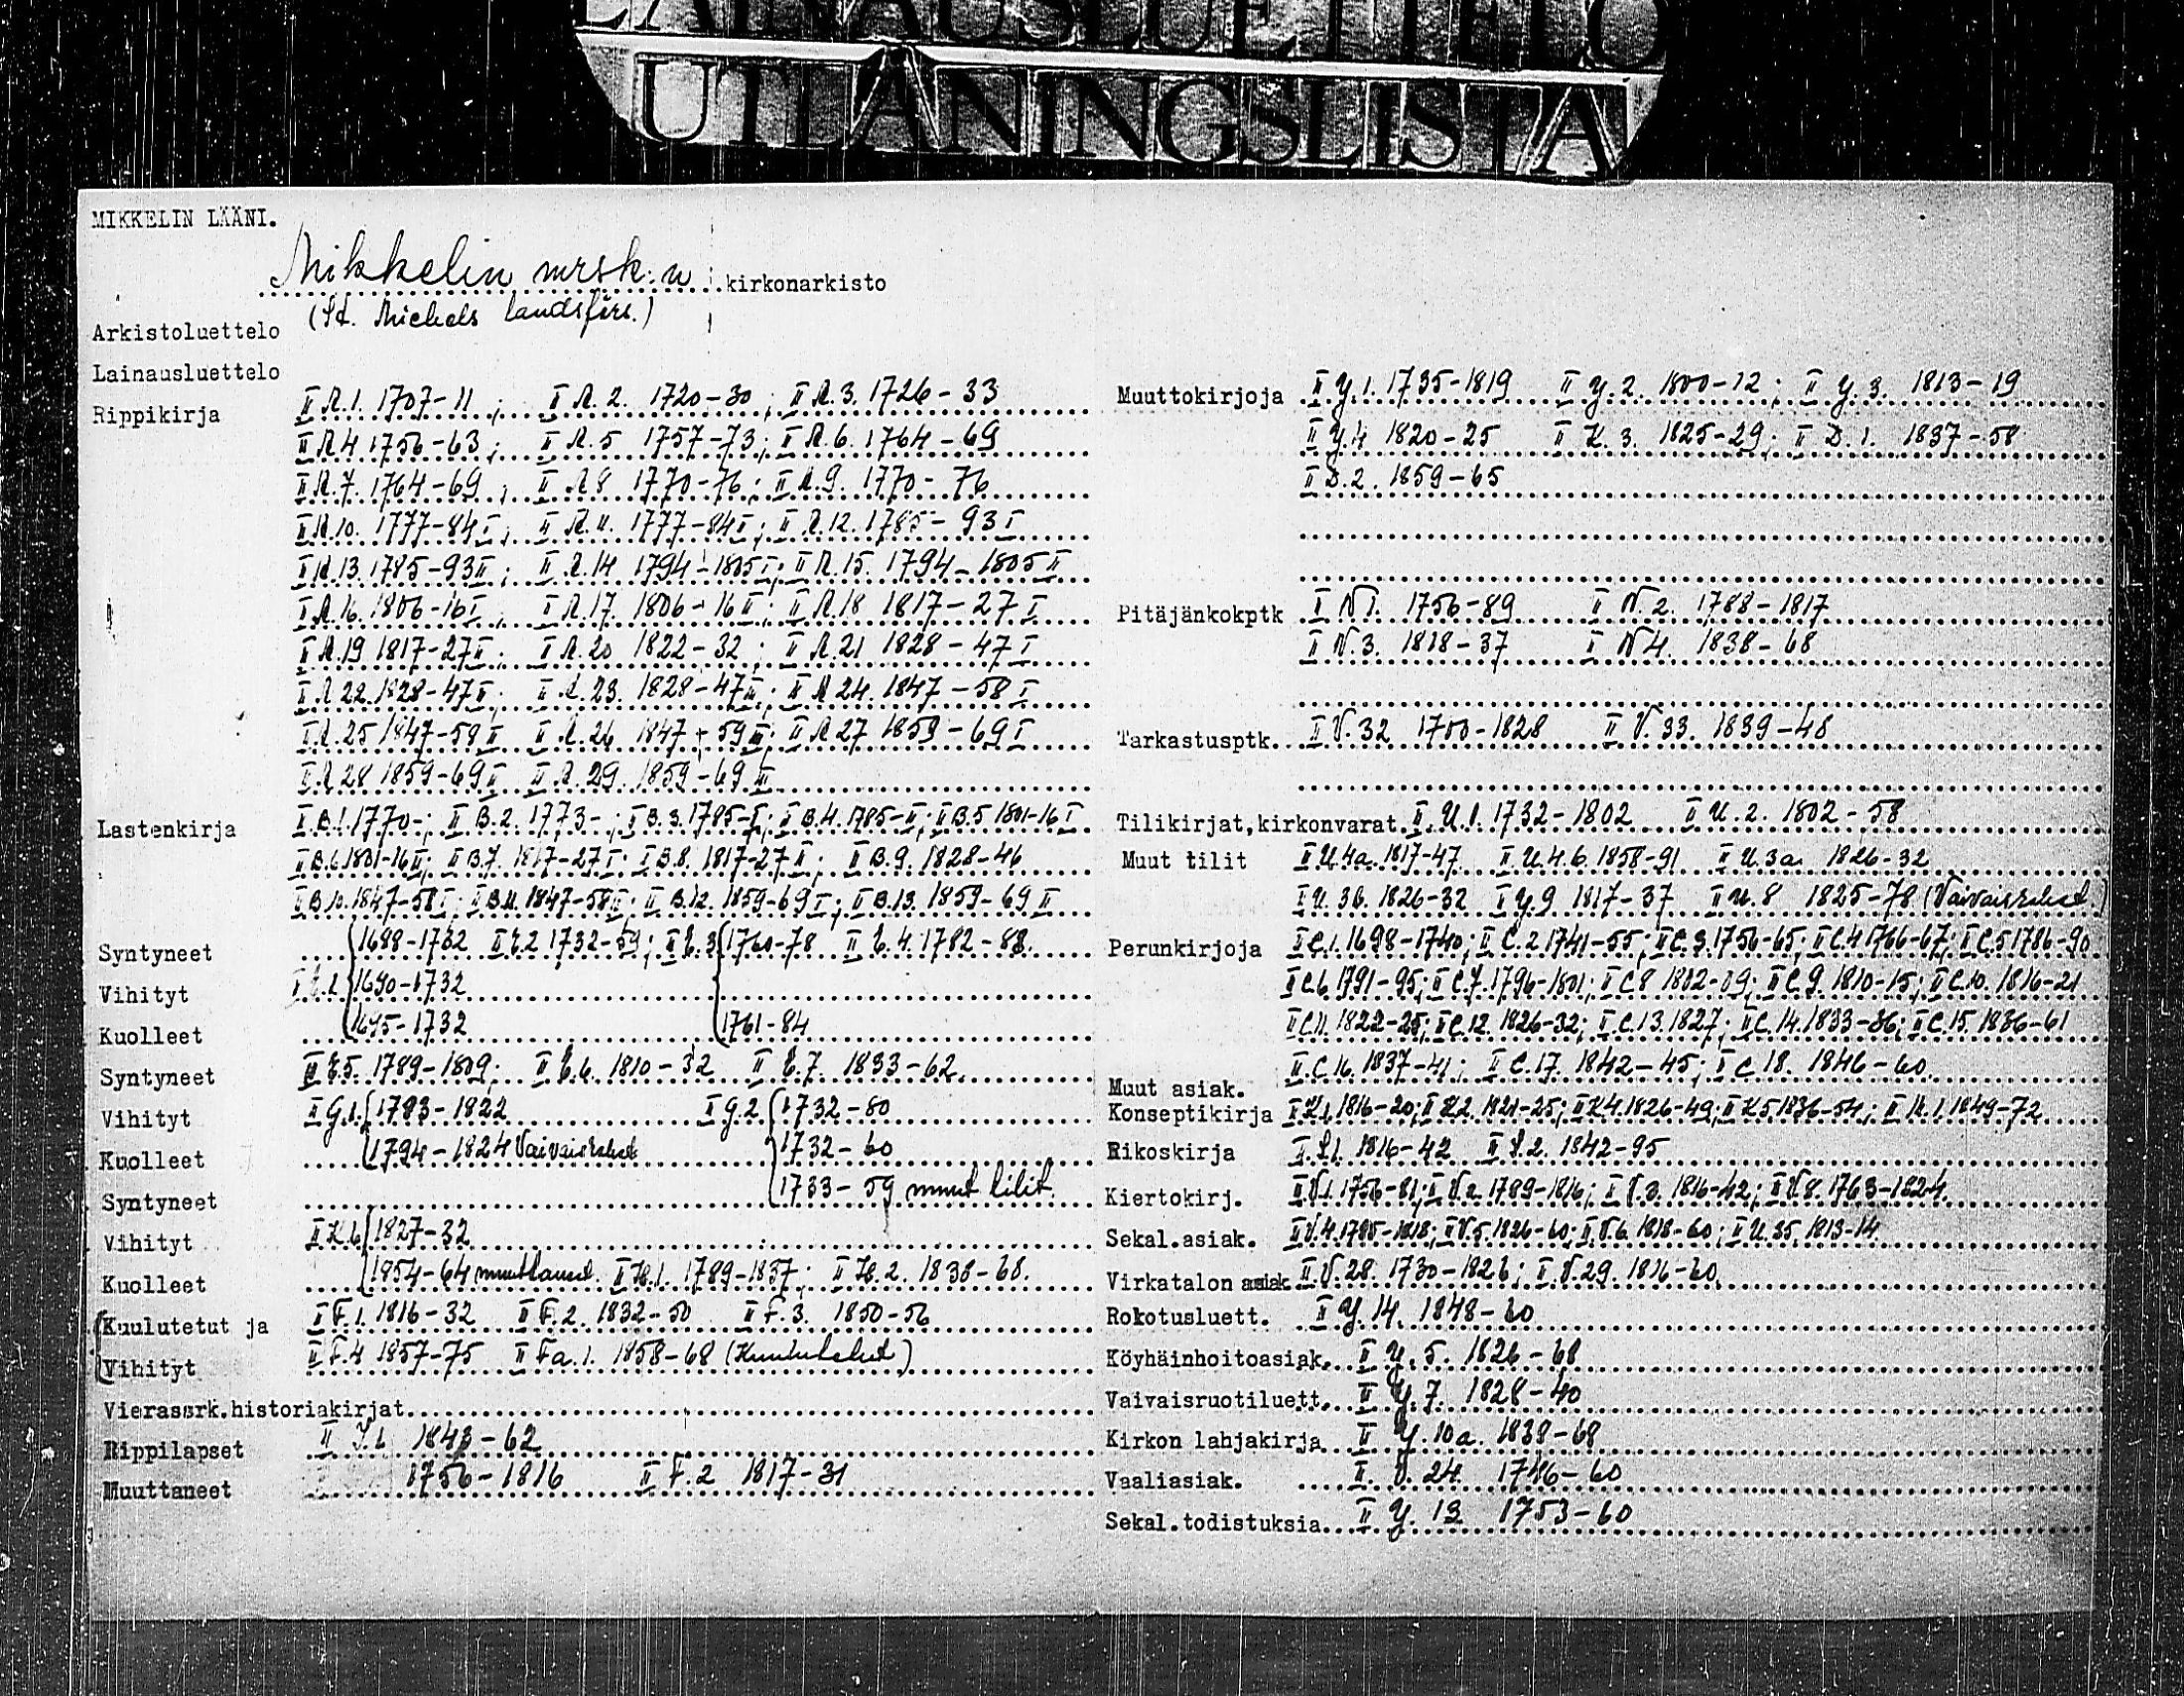 LAINAUSLUETTELO
UTLÅNINGSLISTA
MIKKELIN LÄÄNI.
Mikkelin mrsk:n kirkonarkisto
(St. Michels landsförs.)
Arkistoluettelo
Lainausluettelo
Rippikirja II A.1. 1707-11; II A.2. 1720-30; II A.3. 1726-33
II A.4 1756-63; II A.5 1757-73; II A.6. 1764-69
II A.7. 1764-69; II A 8 1770-76; II A.9. 1770-76
II A.10. 1777-84 I; II A.11. 1777-84 I; II A.12. 1785-93 I
II A.13. 1785-93 II; II A.14 1794-1805 I; II A.15. 1794-1805 II
II A.16. 1806-16 I II A.17. 1806-16 II; II A.18 1817-27 I
II A.19 1817-27 II; II A.20 1822-32; II A.21 1828-47 I
II A 22 1828-47 II; II A.23. 1828-47 III; II A 24. 1847-58 I
II A.25 1847-58 II II A.26 1847-59 III; II A 27 1859-69 I
II A 28 1859-69 II II A.29. 1859-69 III
Lastenkirja II B.1. 1770-; II B.2. 1773-; II B.3. 1785-I; II B.4. 1785-II; II B.5 1801-16 I
II B.6. 1801-16 II; II B.7. 1817-27 I; II B.8. 1817-27 II; II B.9. 1828-46
II B.10. 1847-58 I; II B.11. 1847-58 II; II B.12. 1859-69 I; II B.13. 1859-69 II
Syntyneet 1688-1732 II E.2 1732-59; II E.3 1760-78 II E.4. 1782-88.
Vihityt II E.1. 1690-1732
Kuolleet 1695-1732 1761-84
Syntyneet II E.5. 1789-1809; II E.6. 1810-32 II E.7. 1833-62.
Vihityt II G.1. 1783-1822 II G.2. 1732-80
Kuolleet 1794-1824 Vaivaisrahat 1732-60
Syntyneet 1733-59 muut tilit.
Vihityt II K.6 1827-32
Kuolleet 1954-64 muuttaneet. II H.1. 1789-1837; II H.2. 1838-68.
Kuulutetut ja II F.1. 1816-32 II F.2. 1832-50 II F.3. 1850-56
Vihityt II F.4 1857-75 II Fa.1. 1858-68 (Kuulutetut)
Vierassrk.historiakirjat
Rippilapset II J.1. 1843-62
Muuttaneet 1756-1816 II F.2 1817-31
Muuttokirjoja II Y.1. 1735-1819 II Y.2. 1800-12; II Y.3. 1813-19
II Y.4 1820-25 II K.3. 1825-29; II D.1. 1837-58
II D.2. 1859-65
Pitäjänkokptk II N 1. 1756-89 II N.2. 1788-1817
II N.3. 1818-37 II N 4. 1838-68
Tarkastusptk. II V.32 1700-1828 II V.33. 1839-48
Tilikirjat,kirkonvarat II U.1. 1732-1802 II U.2. 1802-58
Muut tilit II U.4a. 1817-47 II U.4.b. 1858-91 II U.3a. 1826-32
II U.3b. 1826-32 II Y.9 1817-37 II U.8 1825-78 (Vaivaisrahat.)
Perunkirjoja II C.1. 1698-1740; II C.2 1741-55; II C.3. 1756-65; II C.4 1766-67; II C.5 1786-90
II C.6 1791-95; II C.7. 1796-1801; II C 8 1802-09; II C 9. 1810-15; II C.10. 1816-21
II C.11. 1822-25; II C.12. 1826-32; II C.13. 1827; II C.14. 1833-36; II C.15. 1836-61
II C.16. 1837-41; II C.17. 1842-45; II C 18. 1846-60.
Muut asiak.
Konseptikirja II K.1. 1816-20; II K2. 1821-25; II K4. 1826-49; II K5 1836-54; II K.1. 1849-72
Rikoskirja II L1. 1816-42 II L.2. 1842-95
Kiertokirj. II V.1. 1756-81; II V.2. 1789-1816; II V.3. 1816-42; II V.8. 1763-1824.
Sekal.asiak. II V.4. 1785-1818; II V.5. 1826-60; II V.6. 1818-60; II U.35. 1813-14
Virkatalon asiak II V.28. 1730-1826; II V.29. 1816-60.
Rokotusluett. II Y.14. 1848-60
Köyhäinhoitoasiak. II Y.5. 1826-68
Vaivaisruotiluett. II Y.7. 1828-40
Kirkon lahjakirja II Y.10a. 1838-68
Vaaliasiak. II V.24. 1746-60
Sekal.todistuksia II Y.13 1753-60